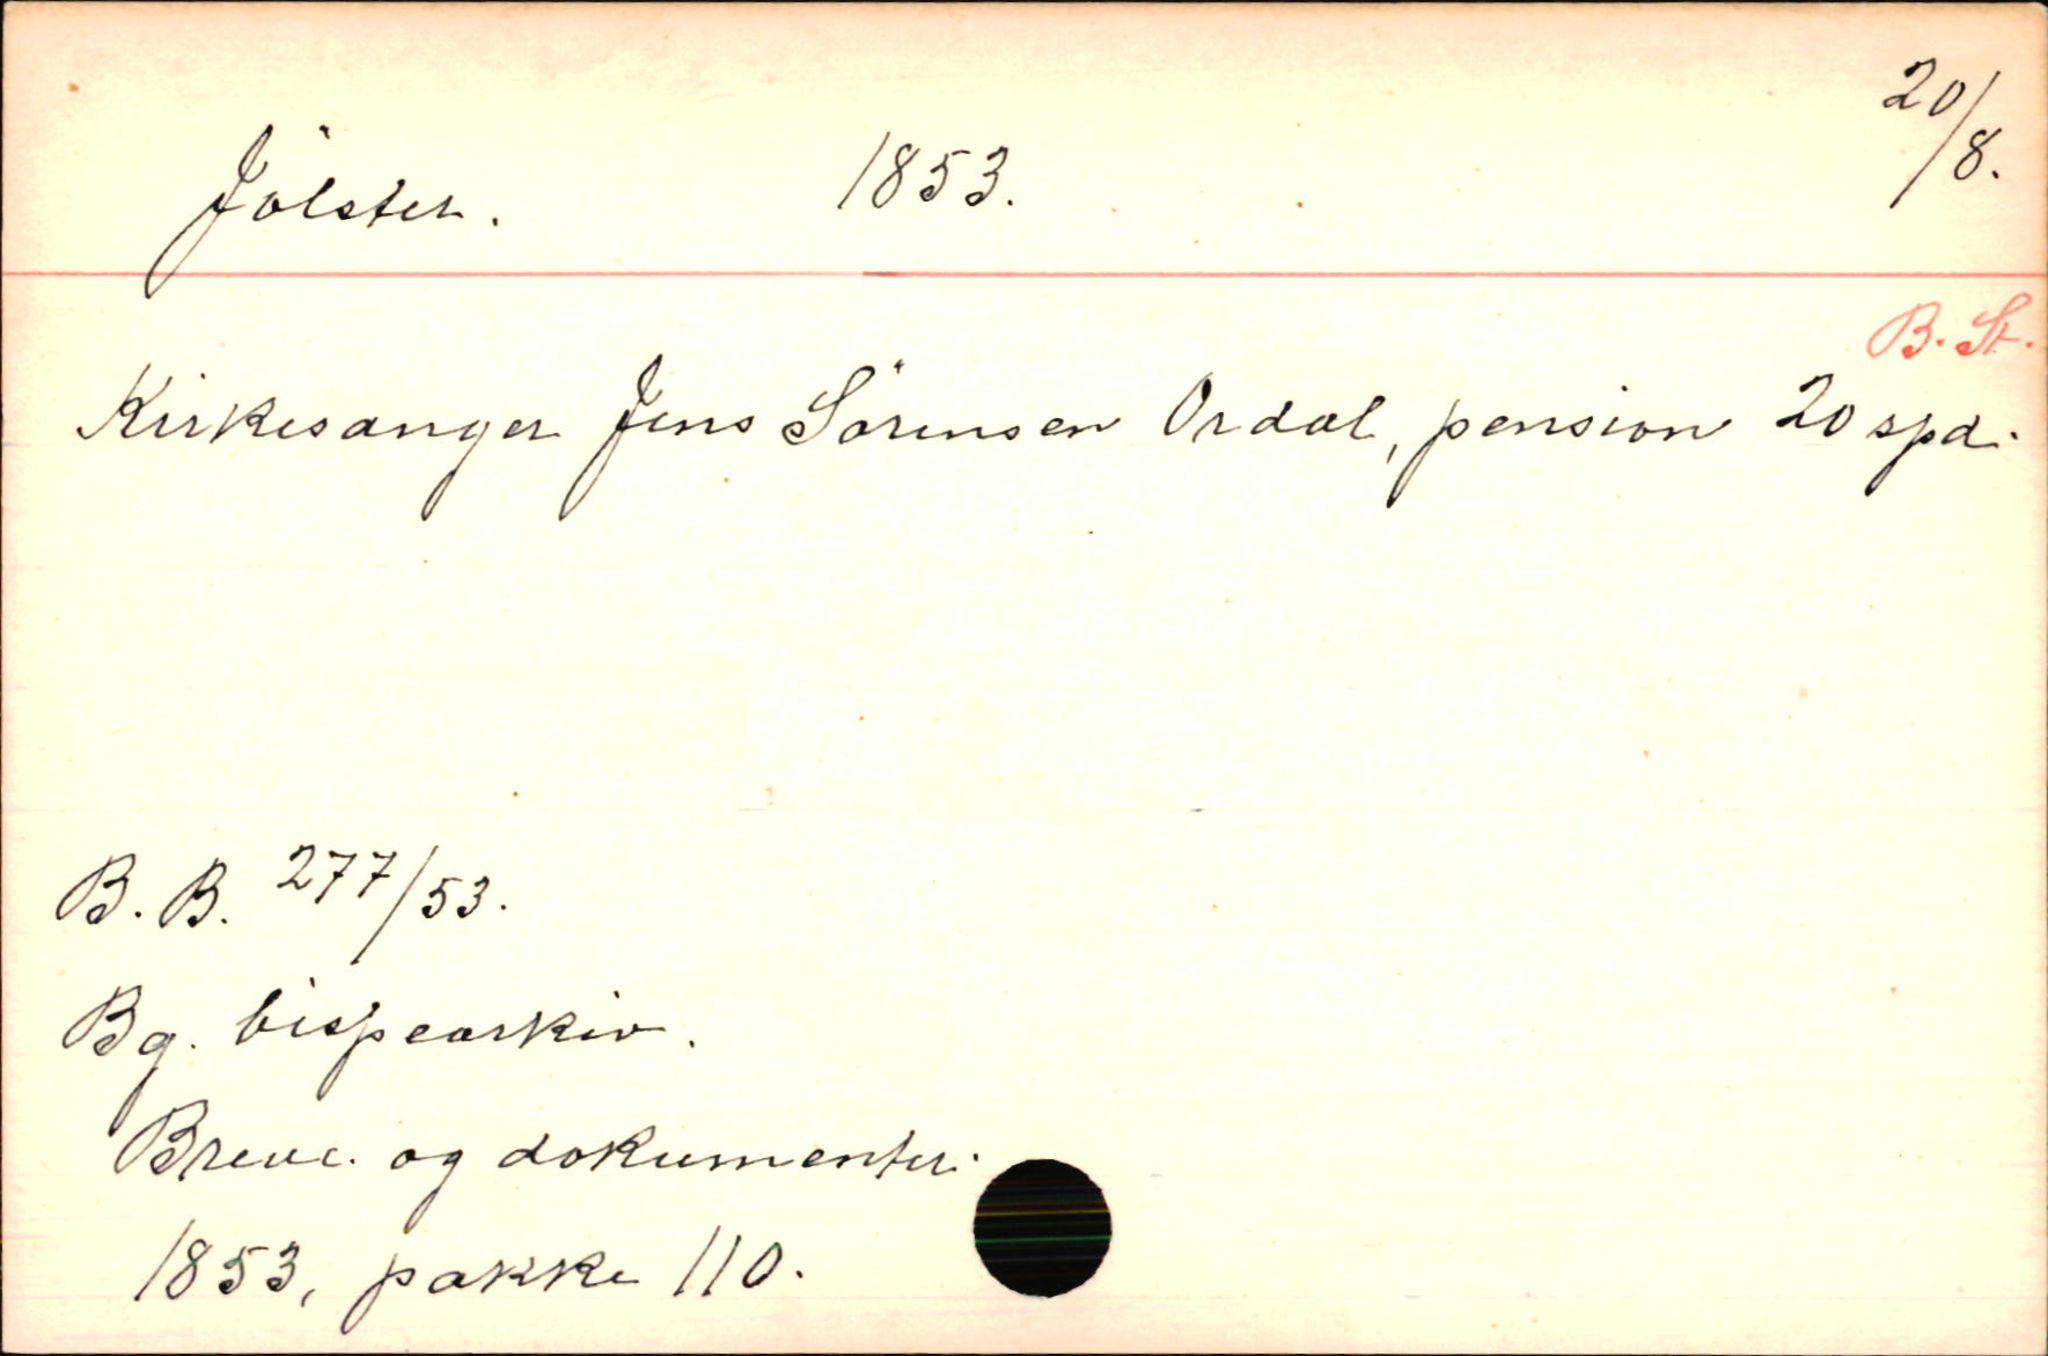 Jölster. 1853. 20/8.
B. St.
Kirkesanger Jens Sörensen Ordal, pension 20 spd.
B. B. 277/53.
Bg. bispearkiv.
Breve og dokumenter
1853, pakke 110.